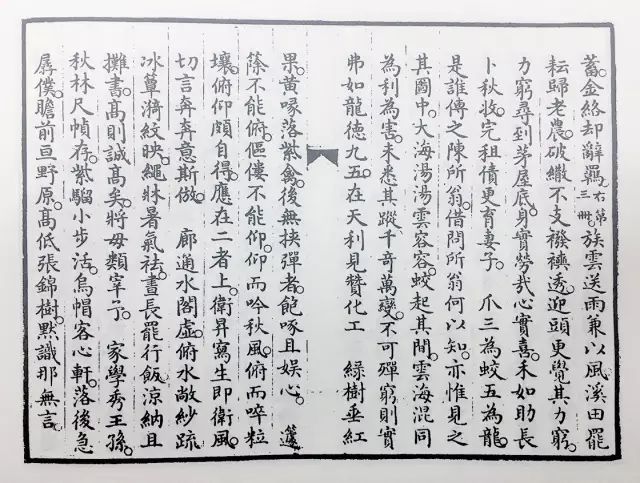 蓄金絡却辭羈右第三冊族雲送雨兼以風溪田罷
耘歸老農破繖不支襏襫透迎頭更覺其力窮
力窮尋到茅屋底身實勞哉心實喜未如助長
卜秋收完租債更育妻子 爪三為蛟五為龍
是誰傳之陳所翁借問所翁何以知亦惟見之
其圖中大海湯湯雲容容蛟起其間雲海混同
為利為害未悉其蹤千奇萬變不可殫窮則實
弗如龍德九五在天利見贊化工 綠樹垂紅
果黄喙落紫禽後無挾彈者飽啄且娛心 蘧
蒢不能俯傴僂不能仰仰而吟秋風俯而啐粒
壤俯仰頗自得應在二者上衛昇寫生即衛風
切言奔奔意斯倣 廊通水閣虛俯水敞紗疏
冰簟漪紋映繩牀暑氣祛晝長罷行飯涼納且
攤書高則誠高矣將毋類宰予 家學秀王孫
秋林尺幀存紫騮小步活烏帽客心軒落後急
孱僕瞻前亘野原高低張錦樹默識那無言